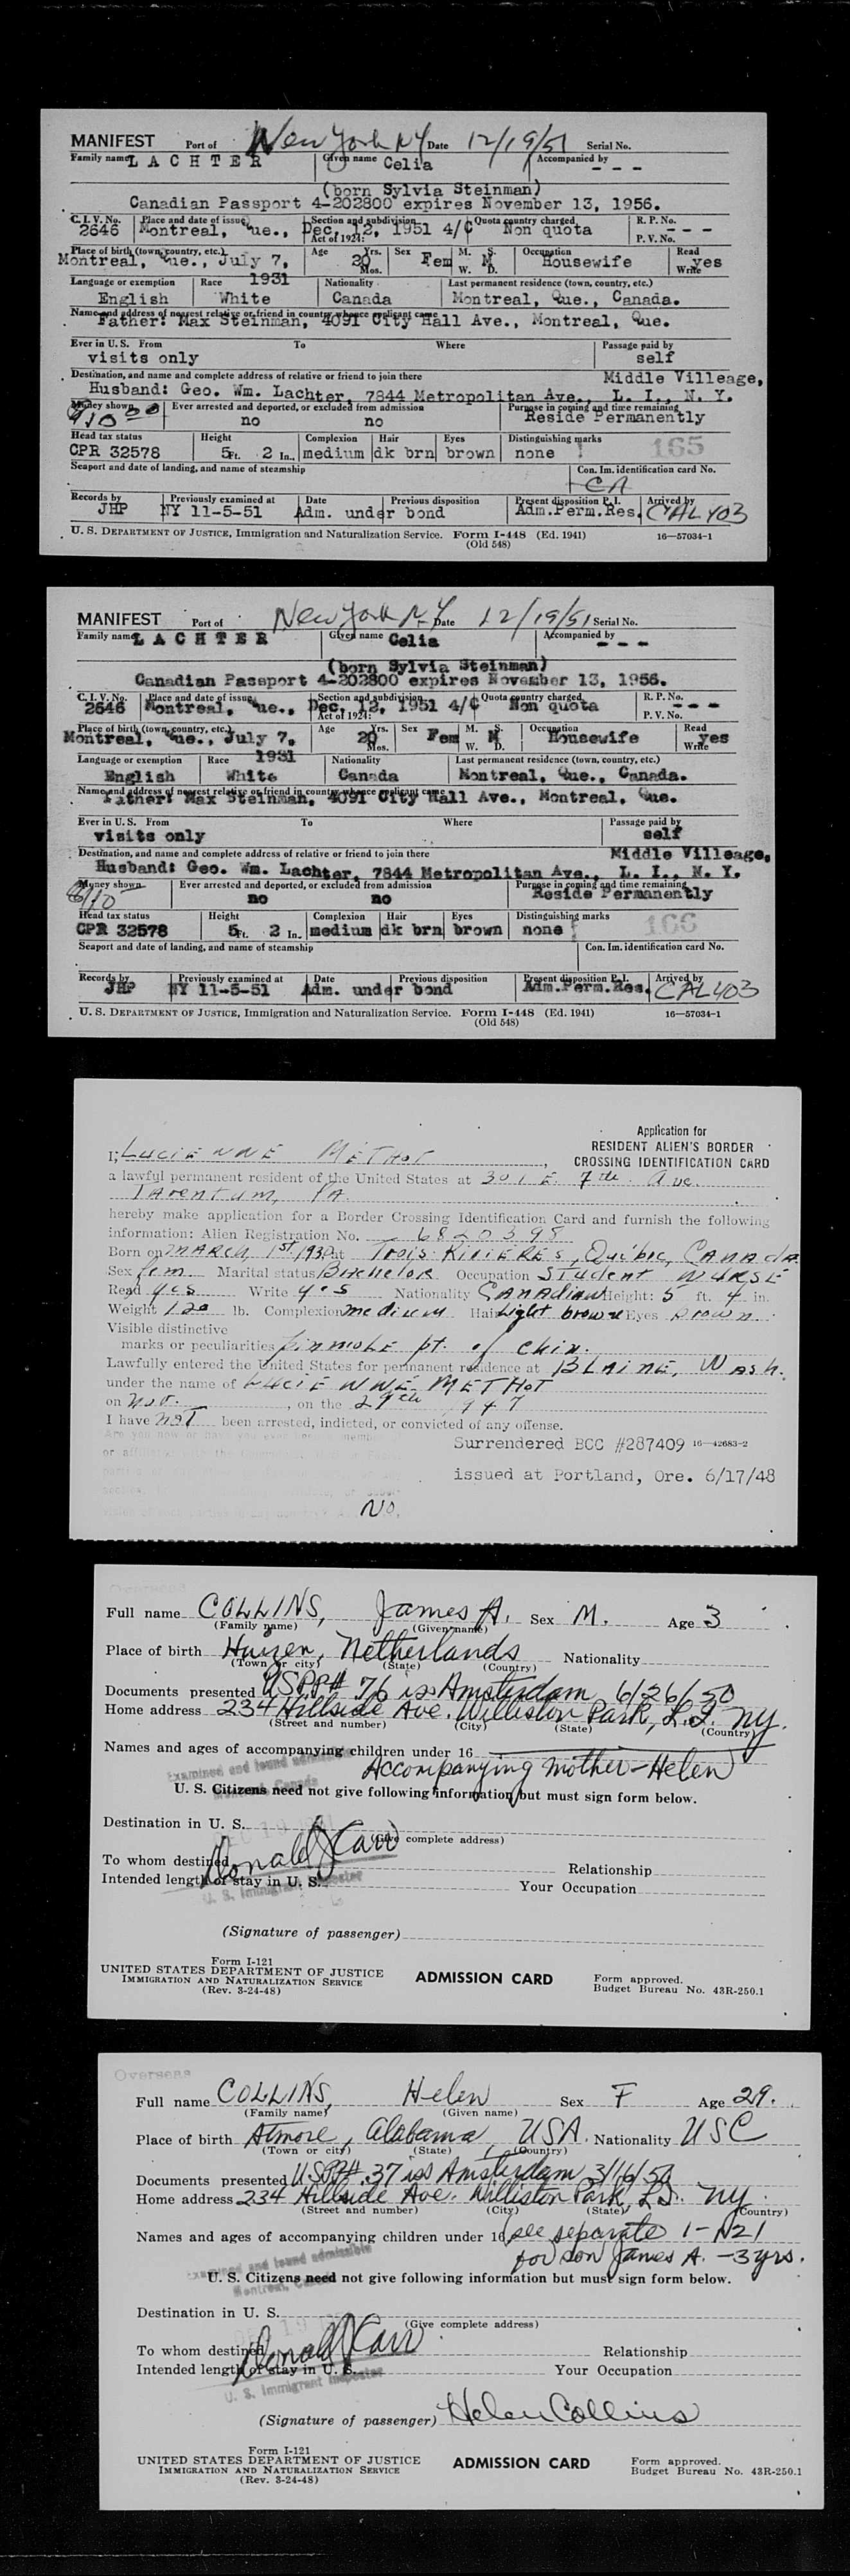 MANIFEST Port of New York NY Date 12/19/51 Serial No.
Family name LACHTER Given name Celia Accompanied by - - -
(born Sylvia Steinman)
Canadian Passport 4-202800 expires November 13, 1956.
C. I. V. No. Place and date of issue Section and subdivision Quota country charged R. P. No.
2646 Montreal, Que., Dec. 12, 1951 4/C Non quota - - -
Act of 1924: P. V. No.
Place of birth (town, country, etc.) Age Yrs. Sex M. S. Occupation Read
Montreal, Que., July 7, 20 Fem M Housewife yes
Mos. W. D. Write
Language or exemption Race 1931 Nationality Last permanent residence (town, country, etc.)
English White Canada Montreal, Que., Canada.
Name and address of nearest relative or friend in country whence applicant came
Father: Max Steinman, 4091 City Hall Ave., Montreal, Que.
Ever in U. S. From To Where Passage paid by
visits only self
Destination, and name and complete address of relative or friend to join there Middle Villeage,
Husband: Geo. Wm. Lachter, 7844 Metropolitan Ave., L. I., N. Y.
Money shown Ever arrested and deported, or excluded from admission Purpose in coming and time remaining
no no Reside Permanently
Head tax status Height Complexion Hair Eyes Distinguishing marks 165
CPR 32578 5 Ft. 2 In. medium dk brn brown none
Seaport and date of landing, and name of steamship Con. Im. identification card No.
CA
Records by Previously examined at Date Previous disposition Present disposition P. I. Arrived by
JHP NY 11-5-51 Adm. under bond Adm.Perm.Res. CAL 403
U. S. DEPARTMENT OF JUSTICE, Immigration and Naturalization Service. Form I-448 (Ed. 1941) 16—57034-1
(Old 548)
MANIFEST Port of New York N.Y. Date 12/19/51 Serial No.
Family name LACHTER Given name Celia Accompanied by - - -
(born Sylvia Steinman)
Canadian Passport 4-202800 expires November 13, 1956.
C. I. V. No. Place and date of issue Section and subdivision Quota country charged R. P. No.
2646 Montreal, Que., Dec. 12, 1951 4/C Non quota - - -
Act of 1924: P. V. No.
Place of birth (town, country, etc.) Age Yrs. Sex M. S. Occupation Read
Montreal, Que., July 7, 20 Fem M Housewife yes
Mos. W. D. Write
Language or exemption Race 1931 Nationality Last permanent residence (town, country, etc.)
English White Canada Montreal, Que., Canada.
Name and address of nearest relative or friend in country whence applicant came
Father: Max Steinman, 4091 City Hall Ave., Montreal, Que.
Ever in U. S. From To Where Passage paid by
visits only self
Destination, and name and complete address of relative or friend to join there Middle Villeage,
Husband: Geo. Wm. Lachter, 7844 Metropolitan Ave., L. I., N. Y.
Money shown Ever arrested and deported, or excluded from admission Purpose in coming and time remaining
no no Reside Permanently
Head tax status Height Complexion Hair Eyes Distinguishing marks 166
CPR 32578 5 Ft. 2 In. medium dk brn brown none
Seaport and date of landing, and name of steamship Con. Im. identification card No.
Records by Previously examined at Date Previous disposition Present disposition P. I. Arrived by
JHP NY 11-5-51 Adm. under bond Adm.Perm.Res. CAL 403
U. S. DEPARTMENT OF JUSTICE, Immigration and Naturalization Service. Form I-448 (Ed. 1941) 16—57034-1
(Old 548)
Application for
RESIDENT ALIEN'S BORDER
CROSSING IDENTIFICATION CARD
I, LUCIENNE METHOT,
a lawful permanent resident of the United States at 301 E 7th Ave.
Tarentum, PA
hereby make application for a Border Crossing Identification Card and furnish the following
information: Alien Registration No. 6820398
Born on MARCH 1st, 1930 at Trois Rivieres, Québec, Canada
Sex fem Marital status Bachelor Occupation Student Nurse
Read yes Write yes Nationality Canadian Height: 5 ft. 4 in.
Weight 120 lb. Complexion medium Hair Light brown Eyes Brown
Visible distinctive
marks or peculiarities pinmole pt. of chin.
Lawfully entered the United States for permanent residence at BLAINE, Wash.
under the name of LUCIENNE METHOT
on Nov., on the 29th 1947
I have not been arrested, indicted, or convicted of any offense.
Surrendered BCC #287409 16—42683-2
issued at Portland, Ore. 6/17/48
No.
Overseas
Full name COLLINS, James A. Sex M. Age 3
(Family name) (Given name)
Place of birth Huizen, Netherlands Nationality
(Town or city) (State) (Country)
Documents presented USPP# 76 iss Amsterdam 6/26/50
Home address 234 Hillside Ave. Williston Park, L.I. NY.
(Street and number) (City) (State) (Country)
Names and ages of accompanying children under 16
Examined and found admissible
Montreal, Canada
Accompanying mother - Helen
U. S. Citizens need not give following information but must sign form below.
Destination in U. S.
(Give complete address)
Donald J Carr
To whom destined Relationship
Intended length of stay in U. S. Your Occupation
U. S. Immigrant Inspector
(Signature of passenger)
Form I-121
UNITED STATES DEPARTMENT OF JUSTICE
IMMIGRATION AND NATURALIZATION SERVICE
(Rev. 3-24-48)
ADMISSION CARD
Form approved.
Budget Bureau No. 43R-250.1
Overseas
Full name COLLINS, Helen Sex F Age 29.
(Family name) (Given name)
Place of birth Atmore, Alabama, USA. Nationality USC
(Town or city) (State) (Country)
Documents presented USPP# 37 iss Amsterdam 3/16/50
Home address 234 Hillside Ave. Williston Park, L.I. NY.
(Street and number) (City) (State) (Country)
Names and ages of accompanying children under 16 see separate I-121
for son James A. - 3 yrs.
Examined and found admissible
Montreal, Canada
U. S. Citizens need not give following information but must sign form below.
Destination in U. S.
(Give complete address)
Donald J Carr
To whom destined Relationship
Intended length of stay in U. S. Your Occupation
U. S. Immigrant Inspector
(Signature of passenger) Helen Collins
Form I-121
UNITED STATES DEPARTMENT OF JUSTICE
IMMIGRATION AND NATURALIZATION SERVICE
(Rev. 3-24-48)
ADMISSION CARD
Form approved.
Budget Bureau No. 43R-250.1